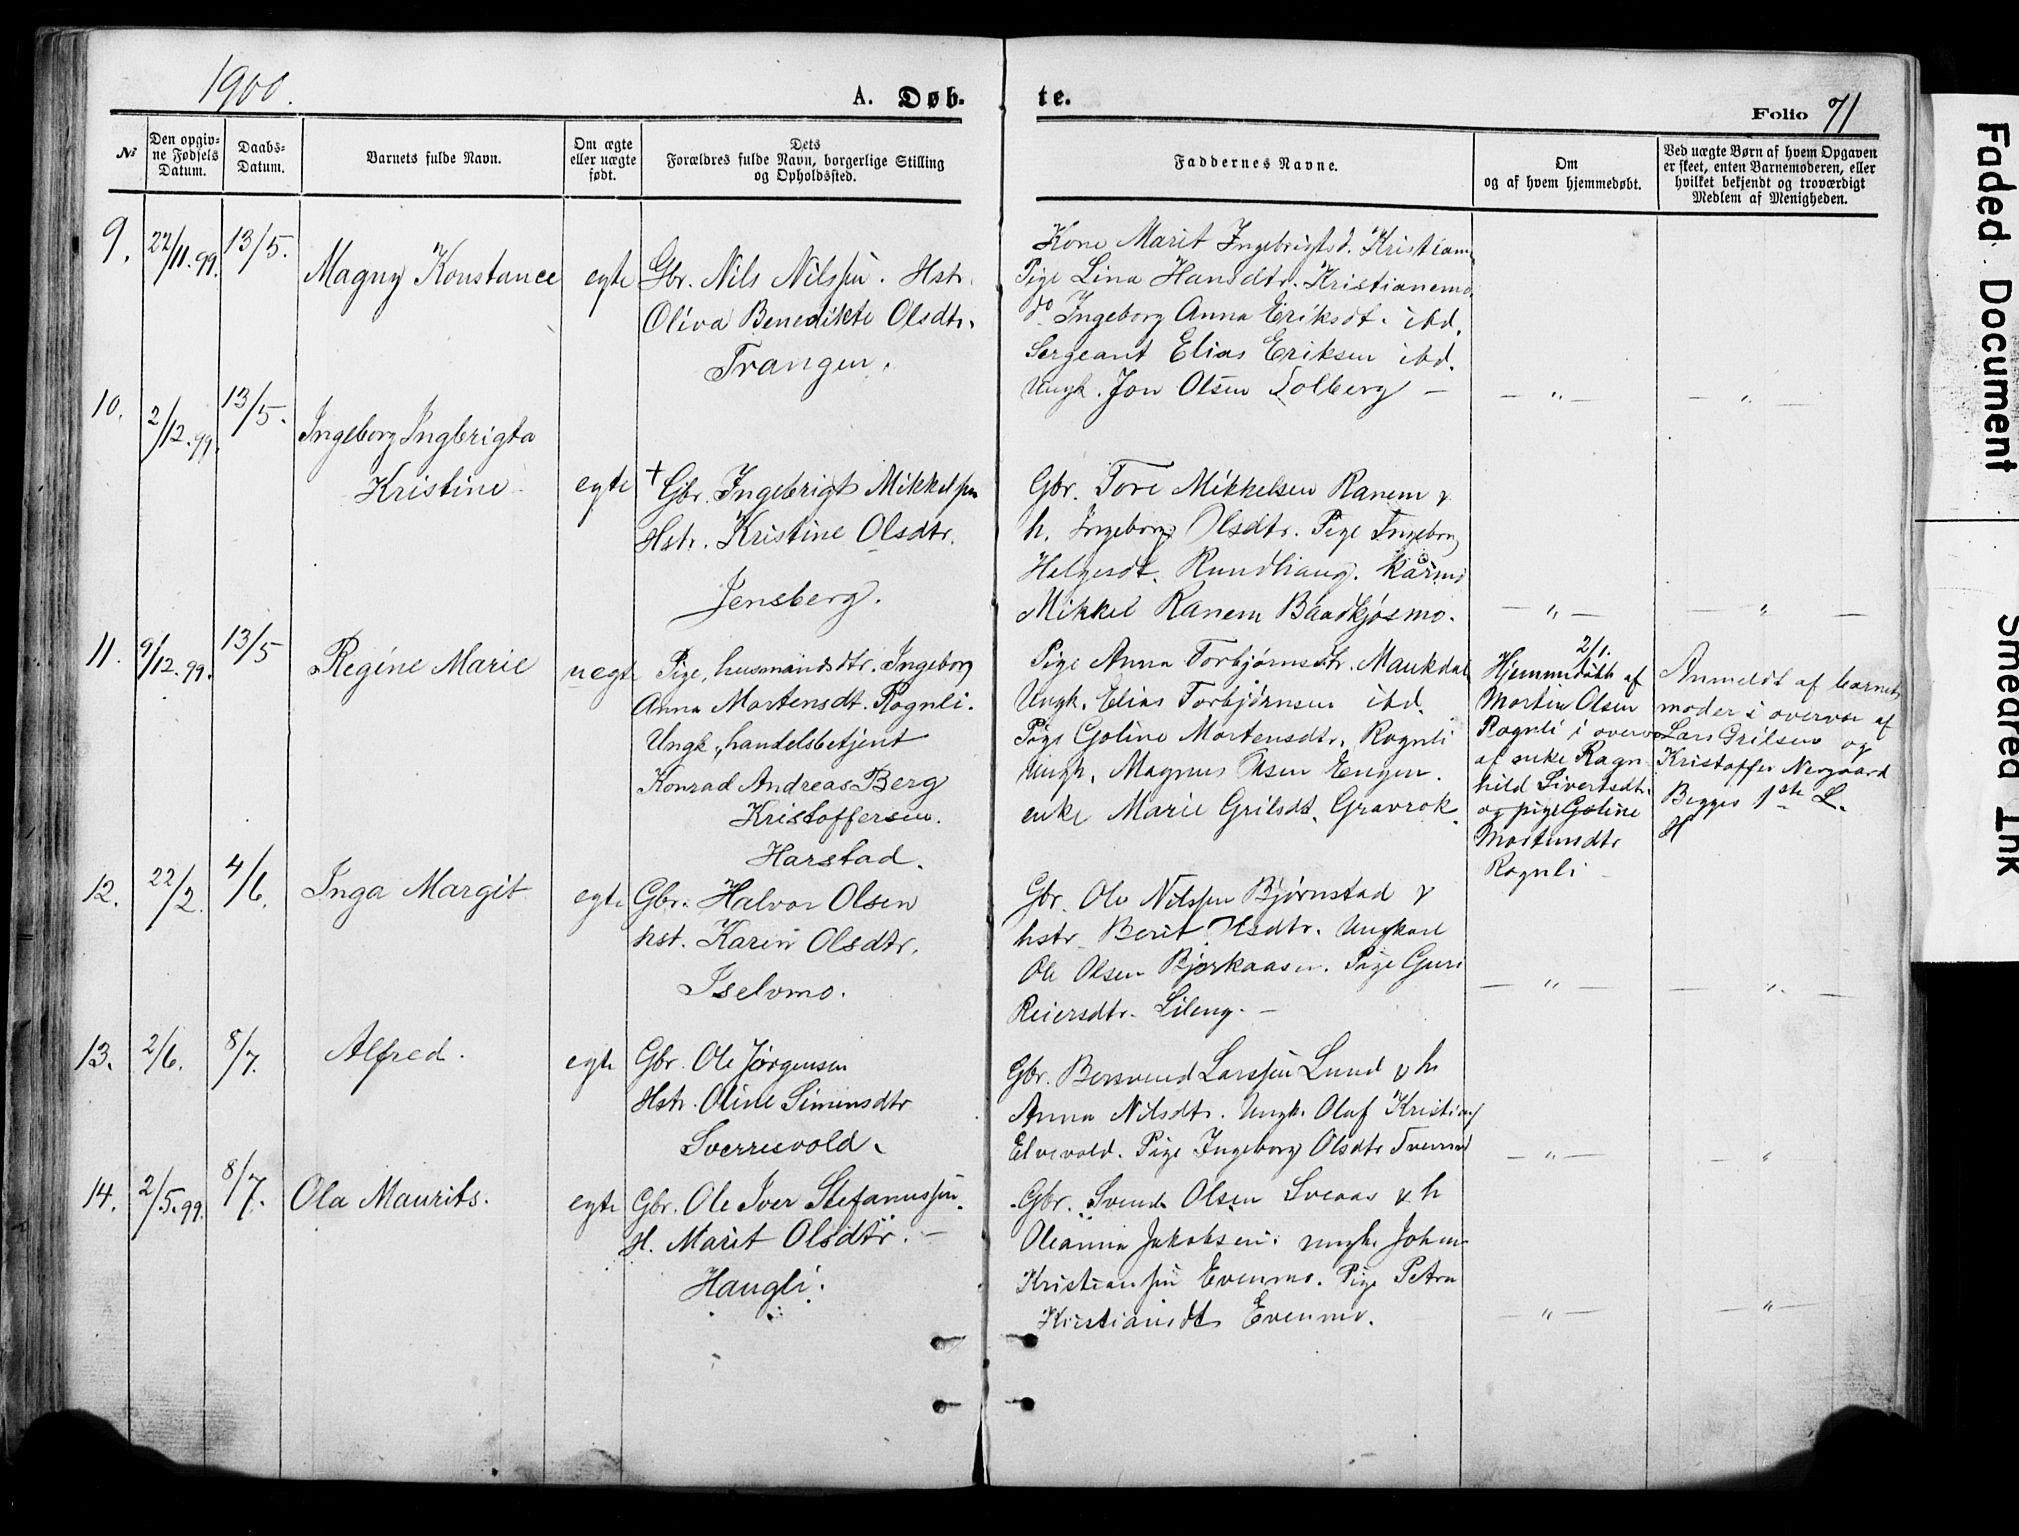 1900.
A. Døb-
te.
Folio 71
№
Den opgiv-
ne Fødsels
Datum.
Daabs-
Datum.
Barnets fulde Navn.
Om ægte
eller uægte
født.
Dets
Forældres fulde Navn, borgerlige Stilling
og Opholdssted.
Faddernes Navne.
Om
og af hvem hjemmedøbt.
Ved uægte Børn af hvem Opgaven
er skeet, enten Barnemoderen, eller
hvilket bekjendt og troværdigt
Medlem af Menigheden.
9. 22/11.99. 13/5.
Magny Konstance egte
Gbr. Nils Nilssen. Hstr.
Oliva Benedikte Olsdtr.
Trangen.
Kone Marit Ingebrigtsd. Kristian
Pige Lina Hansdtr. Kristianemo
do Ingeborg Anna Eriksdt. ibd.
Sergeant Elias Eriksen ibd.
Ungk. Jon Olsen Tolberg —
— " —
— " —
10. 2/12.99. 13/5.
Ingeborg Ingbrigta
Kristine egte
+ Gbr. Ingebrigt Mikkelsen
Hstr. Kristine Olsdtr.
Jensberg.
Gbr. Tore Mikkelsen Ranem &
h. Ingeborg Olsdtr. Pige Ingeborg
Helgesdt. Rundhaug.
Mikkel Ranem Baadkjøsmo.
— " —
— " —
11. 9/12.99. 13/5
Regine Marie uegt
Pige, husmandsdtr. Ingeborg
Anna Mortensdt. Rognli.
Ungk., handelsbetjent
Konrad Andreas Berg
Kristoffersen.
Harstad.
Pige Anna Torbjørnsdtr. Maukdal
Ungk. Elias Torbjørnsen ibd.
Pige Goline Mortensdtr. Rognli
Ungk. Magnus Olsen Engen.
enke Marie Grilsdt. Gravrok.
2/1.
Hjemmedøbt af
Mortin Olsen
Rognli i overv
af enke Ragn
hild Sivertsdtr.
og pige Goline
Mortensdtr
Rognli
Anmeldt af barnets
moder i overvær af
Lars Grilsen og
Kristoffer Nergaard
Begges 1ste L.
H
12. 22/2. 4/6.
Inga Margit egte
Gbr. Halvor Olsen
hst. Karen Olsdtr.
Iselvmo.
Gbr. Ole Nilssen Bjørnstad &
hstr. Berit Olsdtr. Ungkarl
Ole Olsen Bjørkaasen. Pige Guri
Reiersdtr. Lileng. —
— " —
— " —
13. 2/6. 8/7.
Alfred. egte
Gbr. Ole Jørgensen
Hstr. Oline Simensdtr
Sverresvold.
Gbr. Bersvend Larssen Lund & h
Anna Nilsdtr. Ungk. Olaf Kristians
Elvevold. Pige Ingeborg Olsdtr
— " —
— " —
14. 2/5.99. 8/7.
Ola Maurits. egte
Gbr. Ole Iver Stefanussen.
H. Marit Olsdtr. —
Haugli.
Gbr. Svend Olsen Sveaas & h
Oleanna Jakobsen. ungk. Johan
Kristianssen Evenmo. Pige Petra
Kristiansdt Evenmo.
— " —
— " —
Faded Document
Smeared Ink